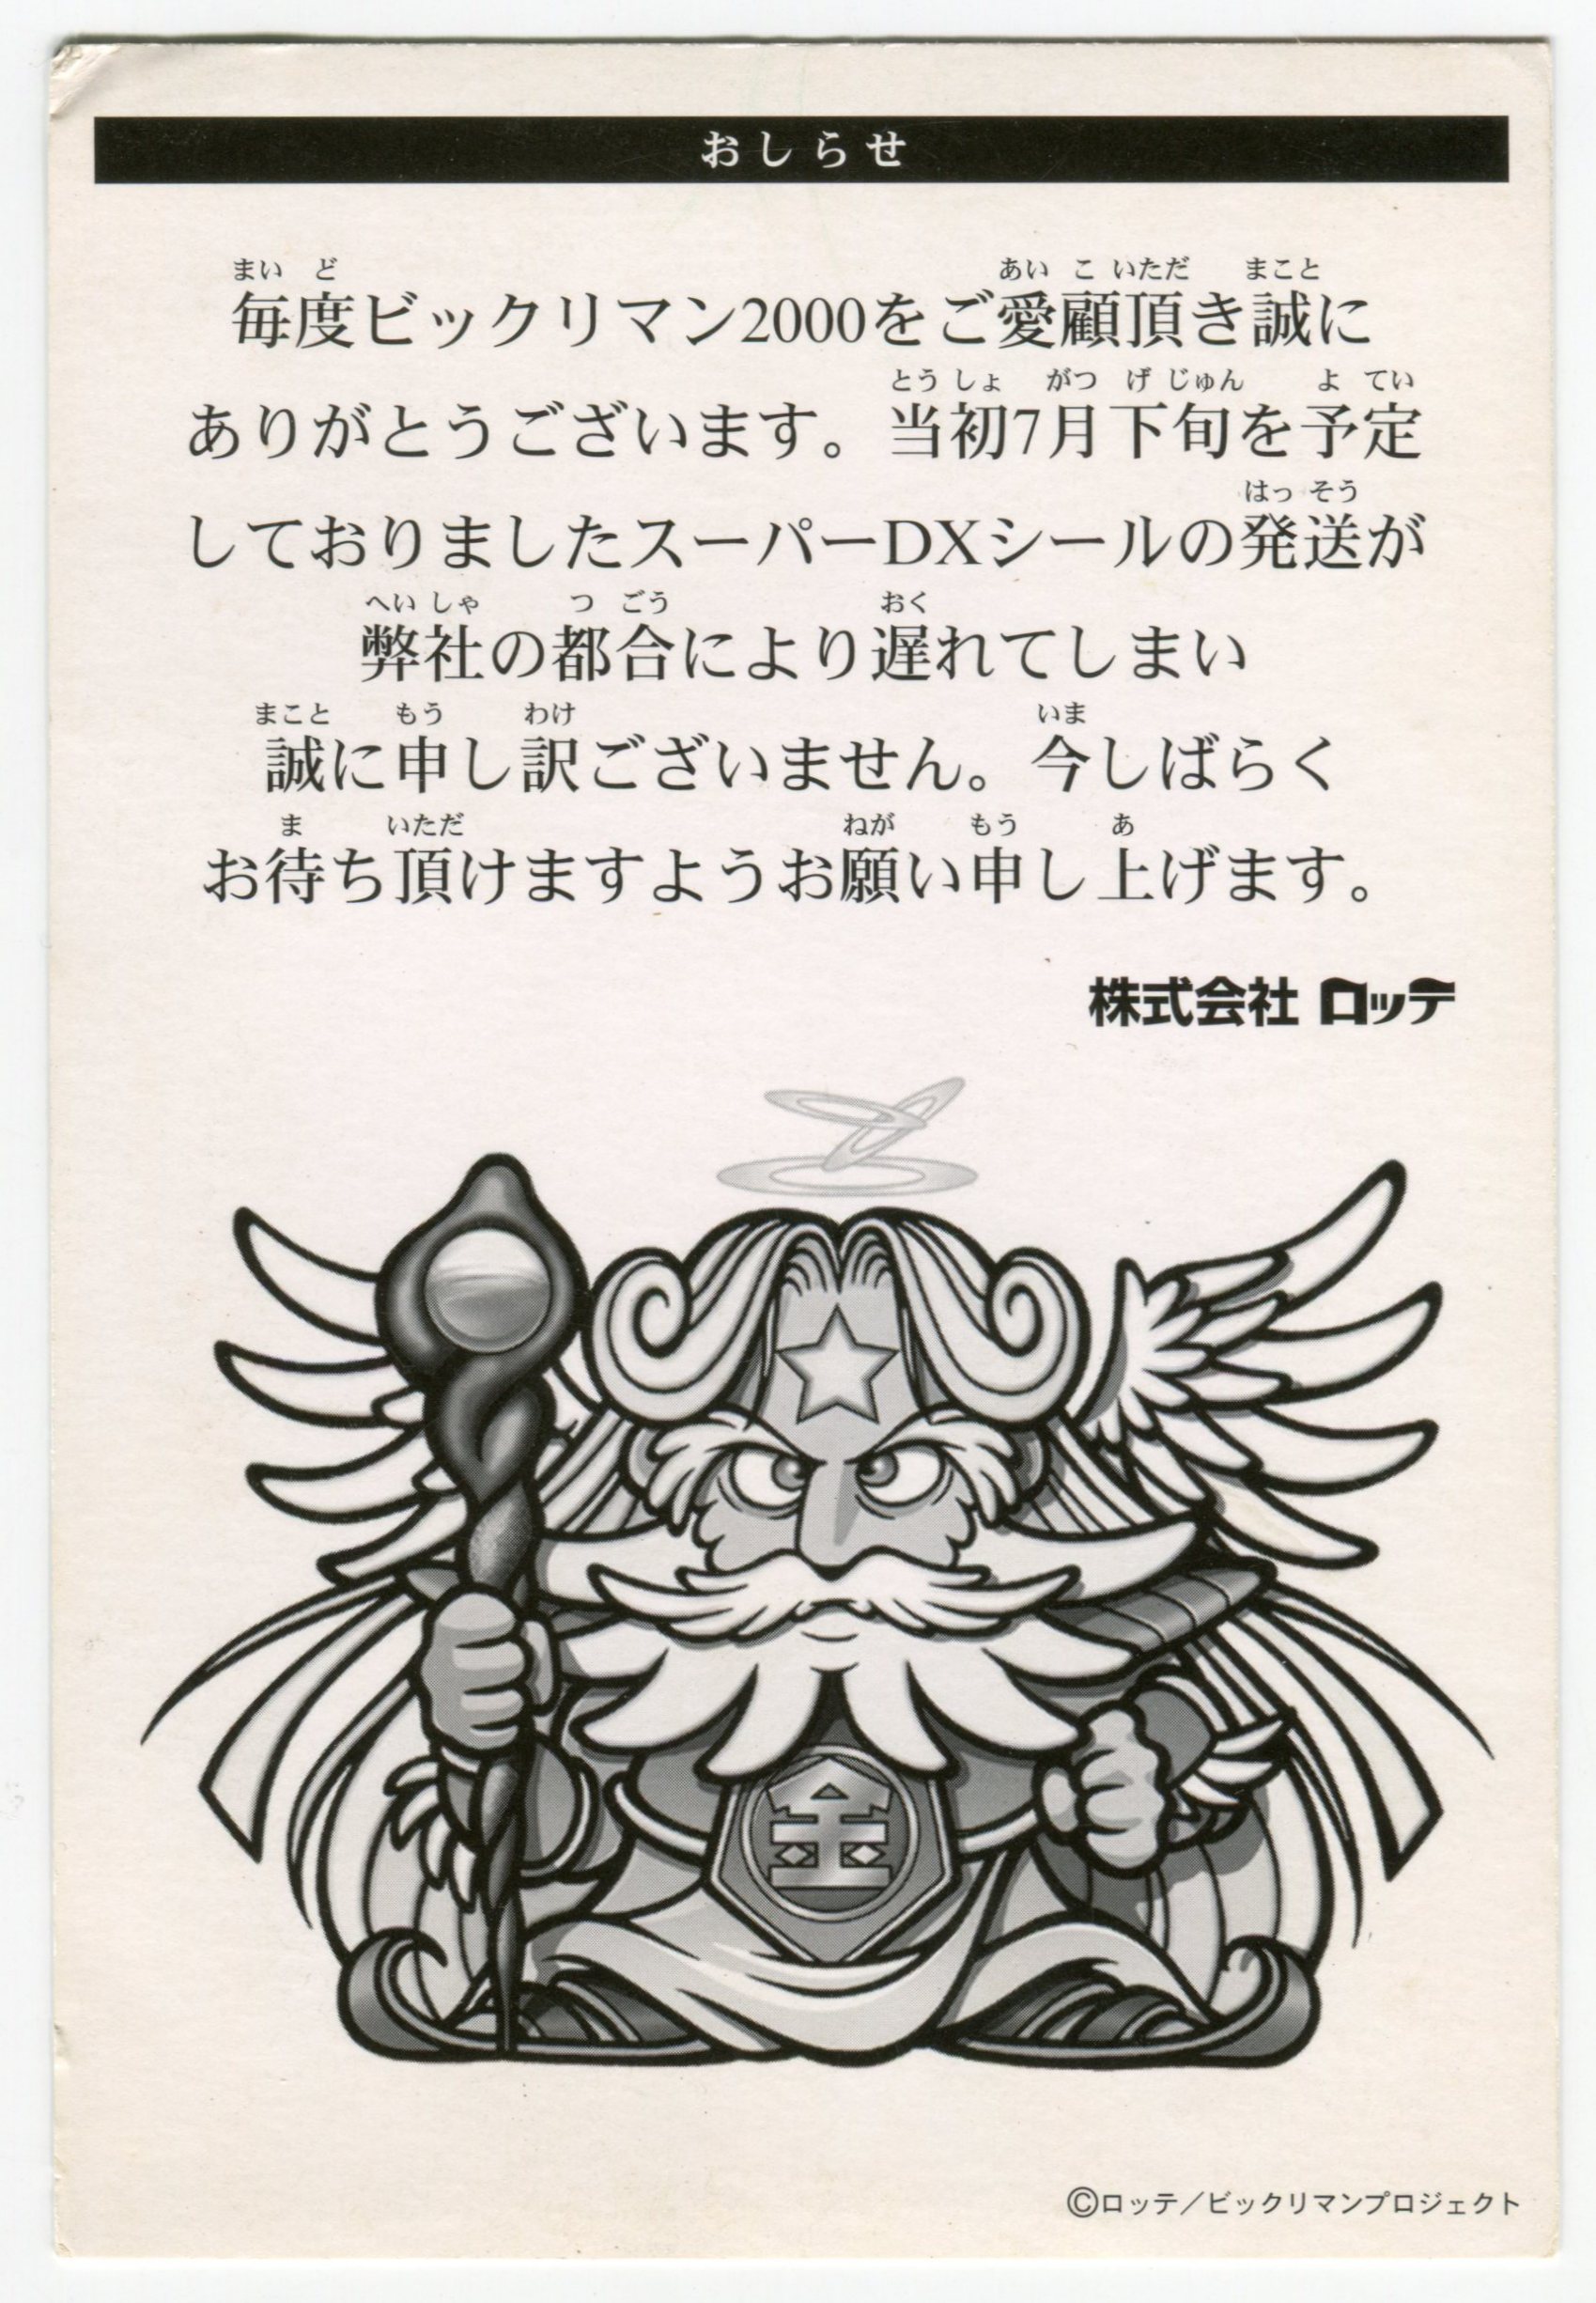 おしらせ
毎度ビックリマン2000をご愛顧頂き誠に
ありがとうございます。当初7月下旬を予定
しておりましたスーパーDXシールの発送が
弊社の都合により遅れてしまい
誠に申し訳ございません。今しばらく
お待ち頂けますようお願い申し上げます。
株式会社 ロッテ
©ロッテ／ビックリマンプロジェクト